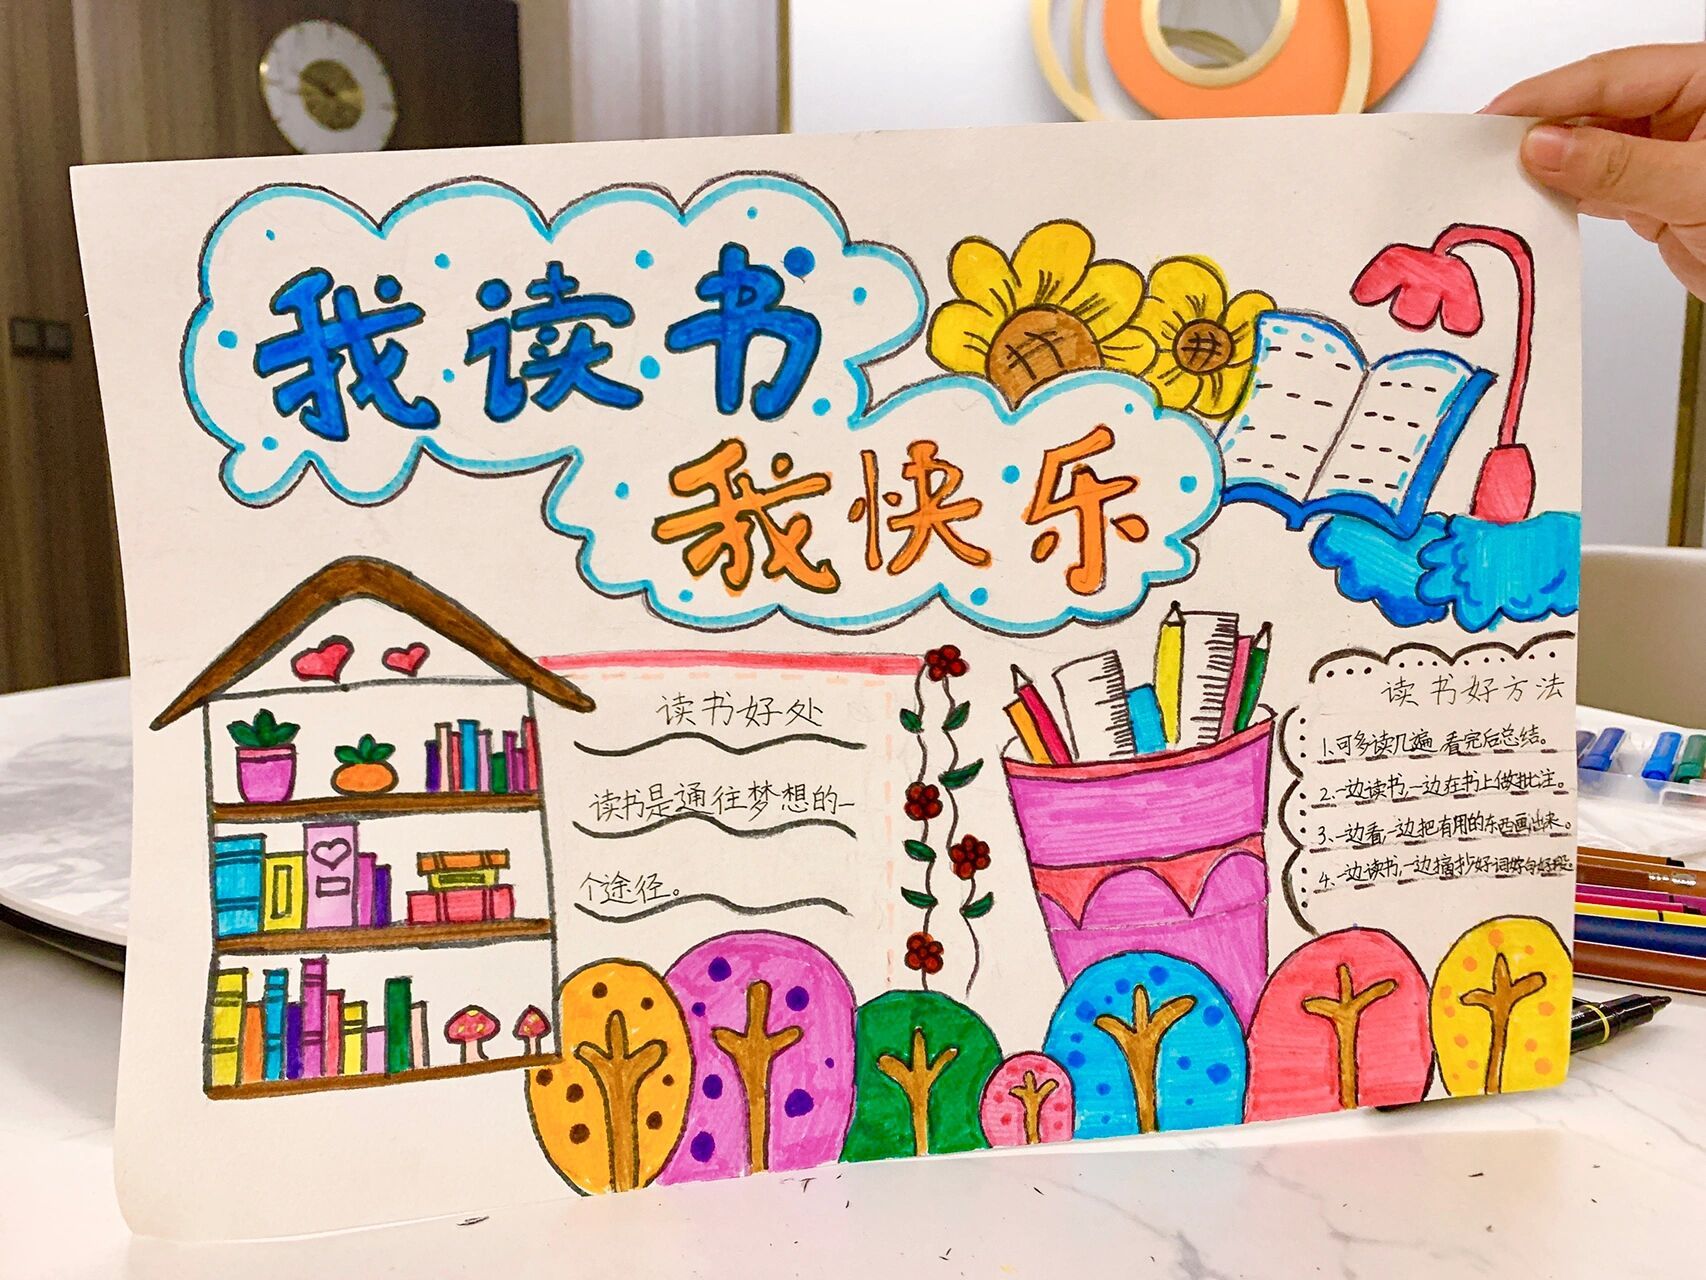 我读书
我快乐
读书好处
读书是通往梦想的一
个途径。
读书好方法
1.可多读几遍,看完后总结。
2.一边读书,一边在书上做批注。
3.一边看,一边把有用的东西画出来。
4.一边读书,一边摘抄好词好句好段。